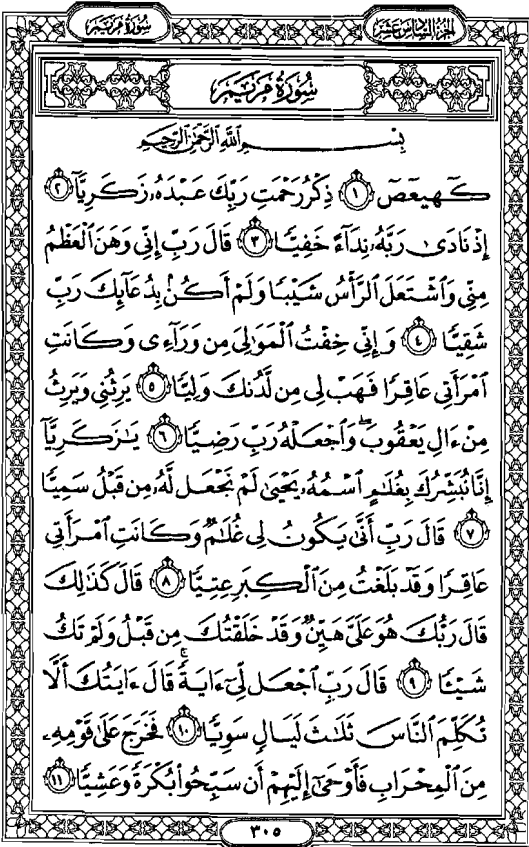 سُورَةُ مَرْيَمَ الجزء السادس عشر
سُورَةُ مَرْيَمَ
بِسْمِ اللَّهِ الرَّحْمَٰنِ الرَّحِيمِ
كٓهيعٓصٓ ١ ذِكْرُ رَحْمَتِ رَبِّكَ عَبْدَهُۥ زَكَرِيَّآ ٢
إِذْ نَادَىٰ رَبَّهُۥ نِدَآءً خَفِيًّا ٣ قَالَ رَبِّ إِنِّى وَهَنَ ٱلْعَظْمُ
مِنِّى وَٱشْتَعَلَ ٱلرَّأْسُ شَيْبًا وَلَمْ أَكُنۢ بِدُعَآئِكَ رَبِّ
شَقِيًّا ٤ وَإِنِّى خِفْتُ ٱلْمَوَٰلِىَ مِن وَرَآءِى وَكَانَتِ
ٱمْرَأَتِى عَاقِرًا فَهَبْ لِى مِن لَّدُنكَ وَلِيًّا ٥ يَرِثُنِى وَيَرِثُ
مِنْ ءَالِ يَعْقُوبَ ۖ وَٱجْعَلْهُ رَبِّ رَضِيًّا ٦ يَٰزَكَرِيَّآ
إِنَّا نُبَشِّرُكَ بِغُلَٰمٍ ٱسْمُهُۥ يَحْيَىٰ لَمْ نَجْعَل لَّهُۥ مِن قَبْلُ سَمِيًّا
٧ قَالَ رَبِّ أَنَّىٰ يَكُونُ لِى غُلَٰمٌ وَكَانَتِ ٱمْرَأَتِى
عَاقِرًا وَقَدْ بَلَغْتُ مِنَ ٱلْكِبَرِ عِتِيًّا ٨ قَالَ كَذَٰلِكَ
قَالَ رَبُّكَ هُوَ عَلَىَّ هَيِّنٌ وَقَدْ خَلَقْتُكَ مِن قَبْلُ وَلَمْ تَكُ
شَيْـًٔا ٩ قَالَ رَبِّ ٱجْعَل لِّىٓ ءَايَةً ۚ قَالَ ءَايَتُكَ أَلَّا
تُكَلِّمَ ٱلنَّاسَ ثَلَٰثَ لَيَالٍ سَوِيًّا ١٠ فَخَرَجَ عَلَىٰ قَوْمِهِۦ
مِنَ ٱلْمِحْرَابِ فَأَوْحَىٰٓ إِلَيْهِمْ أَن سَبِّحُوا۟ بُكْرَةً وَعَشِيًّا ١١
٣٠٥